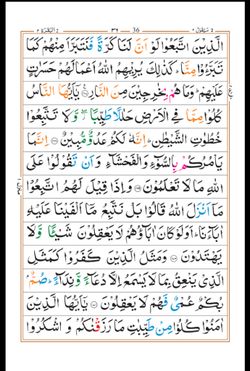 الَّذِيْنَ اتَّبَعُوْا لَوْ اَنَّ لَنَا كَرَّةً فَنَتَبَرَّاَ مِنْهُمْ كَمَا
تَبَرَّءُوْا مِنَّا ؕ كَذٰلِكَ يُرِيْهِمُ اللّٰهُ اَعْمَالَهُمْ حَسَرٰتٍ
عَلَيْهِمْ ؕ وَمَا هُمْ بِخٰرِجِيْنَ مِنَ النَّارِ يٰۤاَيُّهَا النَّاسُ
كُلُوْا مِمَّا فِي الْاَرْضِ حَلٰلًا طَيِّبًا وَّلَا تَتَّبِعُوْا
خُطُوٰتِ الشَّيْطٰنِ ؕ اِنَّهٗ لَكُمْ عَدُوٌّ مُّبِيْنٌ اِنَّمَا
يَاْمُرُكُمْ بِالسُّوْٓءِ وَالْفَحْشَآءِ وَاَنْ تَقُوْلُوْا عَلَى
اللّٰهِ مَا لَا تَعْلَمُوْنَ وَاِذَا قِيْلَ لَهُمُ اتَّبِعُوْا
مَاۤ اَنْزَلَ اللّٰهُ قَالُوْا بَلْ نَتَّبِعُ مَاۤ اَلْفَيْنَا عَلَيْهِ
اٰبَآءَنَا ؕ اَوَلَوْ كَانَ اٰبَآؤُهُمْ لَا يَعْقِلُوْنَ شَيْئًا وَّلَا
يَهْتَدُوْنَ وَمَثَلُ الَّذِيْنَ كَفَرُوْا كَمَثَلِ
الَّذِيْ يَنْعِقُ بِمَا لَا يَسْمَعُ اِلَّا دُعَآءً وَّنِدَآءً ؕ صُمٌّۢ
بُكْمٌ عُمْيٌ فَهُمْ لَا يَعْقِلُوْنَ يٰۤاَيُّهَا الَّذِيْنَ
اٰمَنُوْا كُلُوْا مِنْ طَيِّبٰتِ مَا رَزَقْنٰكُمْ وَاشْكُرُوْا